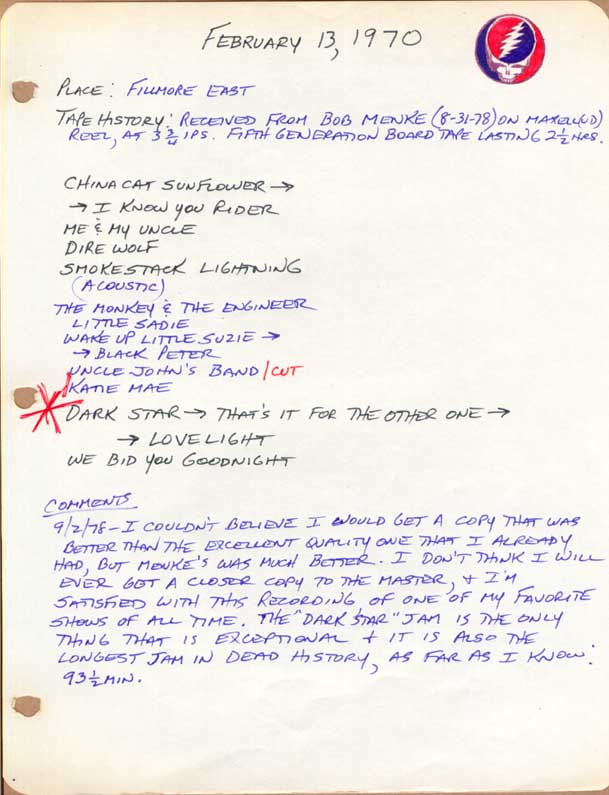 FEBRUARY 13, 1970
PLACE: FILLMORE EAST
TAPE HISTORY: RECEIVED FROM BOB MENKE (8-31-78) ON MAXELL (UD)
REEL, AT 3 3/4 IPS. FIFTH GENERATION BOARD TAPE LASTING 2 1/2 HRS.
CHINA CAT SUNFLOWER →
→ I KNOW YOU RIDER
ME & MY UNCLE
DIRE WOLF
SMOKESTACK LIGHTNING
(ACOUSTIC)
THE MONKEY & THE ENGINEER
LITTLE SADIE
WAKE UP LITTLE SUZIE →
→ BLACK PETER
UNCLE JOHN'S BAND / CUT
KATIE MAE
DARK STAR → THAT'S IT FOR THE OTHER ONE →
→ LOVELIGHT
WE BID YOU GOODNIGHT
COMMENTS
9/2/78 - I COULDN'T BELIEVE I WOULD GET A COPY THAT WAS
BETTER THAN THE EXCELLENT QUALITY ONE THAT I ALREADY
HAD, BUT MENKE'S WAS MUCH BETTER. I DON'T THINK I WILL
EVER GET A CLOSER COPY TO THE MASTER, & I'M
SATISFIED WITH THIS RECORDING OF ONE OF MY FAVORITE
SHOWS OF ALL TIME. THE "DARK STAR" JAM IS THE ONLY
THING THAT IS EXCEPTIONAL & IT IS ALSO THE
LONGEST JAM IN DEAD HISTORY, AS FAR AS I KNOW:
93 1/2 MIN.